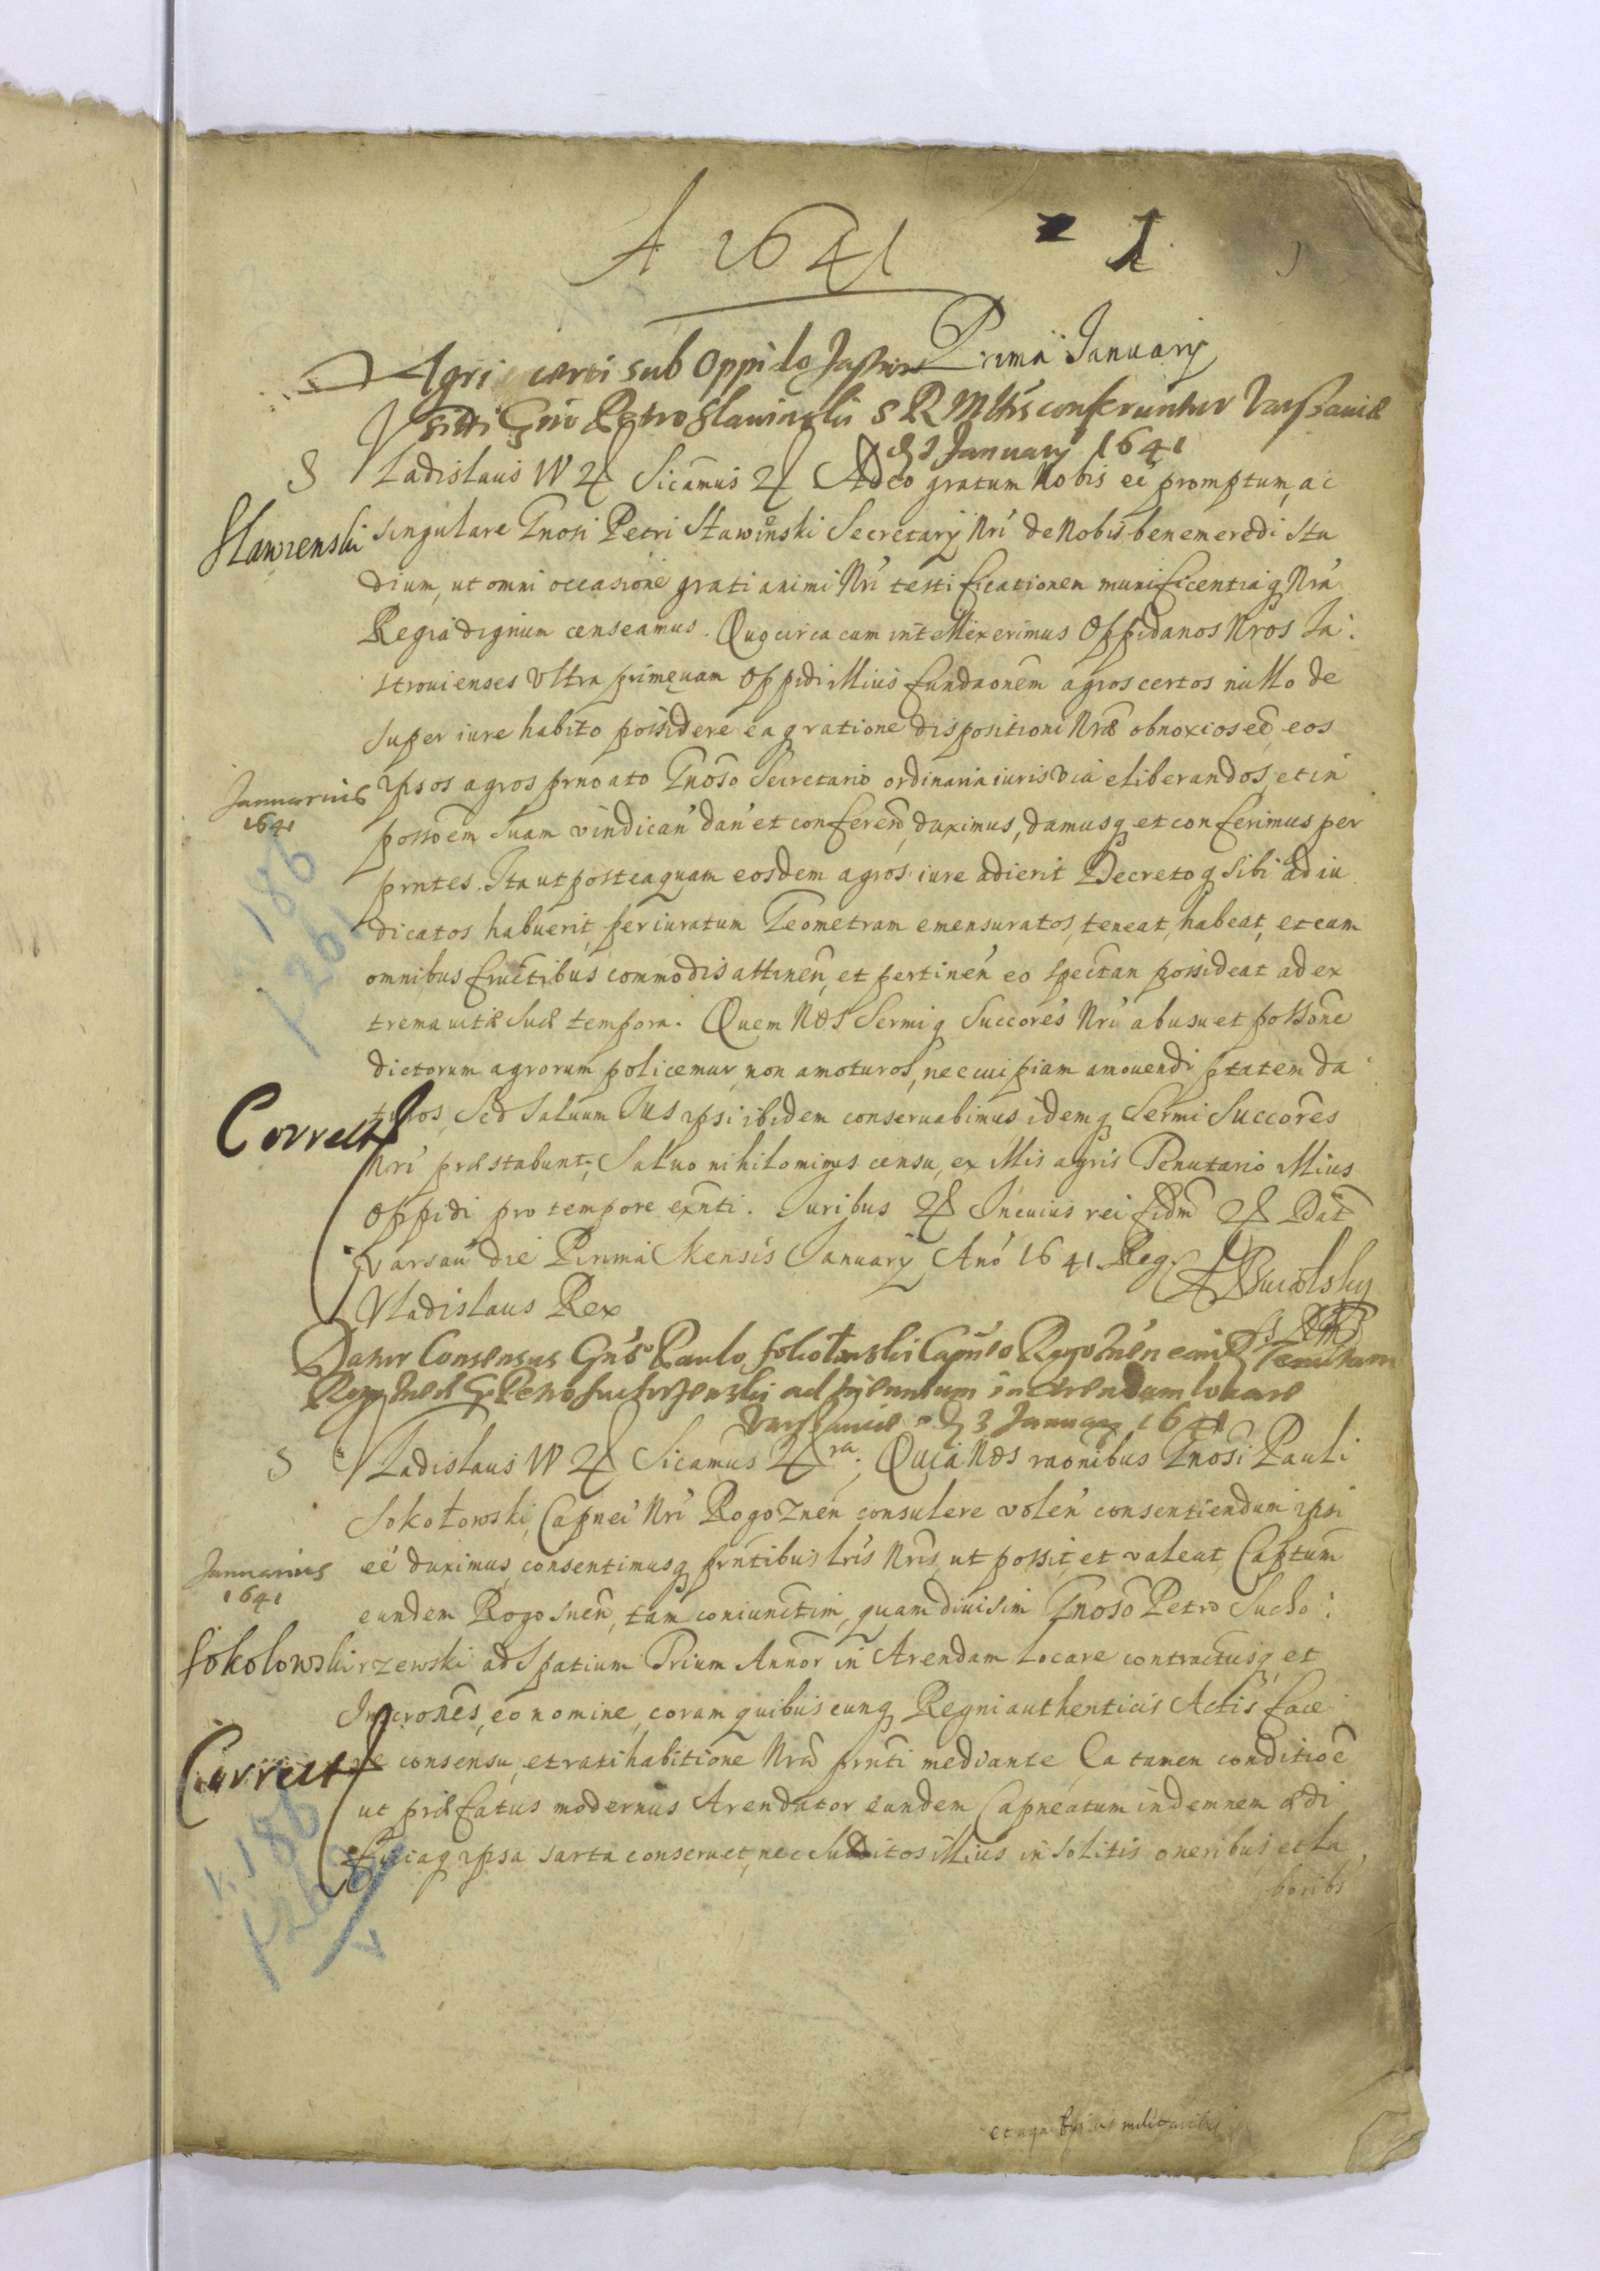 A 1641
1
Prima January
Agri certi sub Oppido Jastrow
siti Gnō Petro Slawinski S R Mttis conferuntur Varssaviæ
d 1 January 1641
S Vladislaus IV Sicamus Adeo gratum Nobis eē promptum, ac
Slawienski
singulare Gnosi Petri Stawinski Secretarÿ Nri de Nobis benemerēdi stu
dium, ut omni occasione grati animi Nri testificationem munificentiaq Nrā
Regia dignum censeamus. Quocirca cum intellixerimus Oppidanos Nros Ja:
strouienses Ultra primeuam Oppidi Illius fundaonem agros certos nullo de
super iure habito possidere ea q ratione dispositioni Nræ obnoxios eē, eos
Januarius
1641
ipsos agros prnoato Gnoso Secretario ordinaria iuris via eliberandos, et in
possoem suam vindican dan et conferen duximus, damusq et conferimus per
prntes. Ita ut posteaquam eosdem agros iure adierit Decretoq sibi adiu
186
f 261
dicatos habuerit, per iuratum Geometram emensuratos, teneat, habeat, et cum
omnibus fructibus commodis attinen, et pertinen eo spectan possideat ad ex
trema vitæ suæ tempora. Quem Nos Sermiq Succores Nri ab usu et possone
dictorum agrorum policemur, non amoturos, nec cuipiam amouendi ptatem da
Correct
turos, Sed Saluum Ius ipsi ibidem conseruabimus idemq Sermi Succores
Nri præstabunt; Saluo nihilominus censu, ex Illis agris Tenutario Illius
Oppidi pro tempore exnti. Iuribus In cuius rei fidm Dat
Varsau die Prima Mensis January Ano 1641. Reg.
Vladislaus Rex
Datur Consensus Gnso Paulo Sokołowski Capneo Rogoznen
Petro Suchorzewski ad triennium in arendam locare
Varssaviæ d 3 January 1641
S Vladislaus IV Sicamus ra: Quia Nos raonibus Gnosi Pauli
Sokołowski, Capnei Nri Rogoznen consulere volen consentiendum ipsi
Januarius
1641
eē duximus, consentimusq prntibus Lris Nris, ut possit, et valeat, Captum
eundem Rogosnen, tam coniunctim, quam diuisim Gnoso Petro Sucho:
Sokolowski
rzewski ad Spatium Trium Annor in Arendam Locare contractusq et
Inscrones, eo nomine, coram quibuscunq Regni authenticis Actis face
Correct
re consensu, et ratihabitione Nra prnti mediante Ea tamen conditioē
ut præfatus modernus Arendator eundem Capneatum indemnem ædi
ficiaq ipsa sarta conseruet, nec subditos illius insolitis oneribus et la
boribs
186
f 262